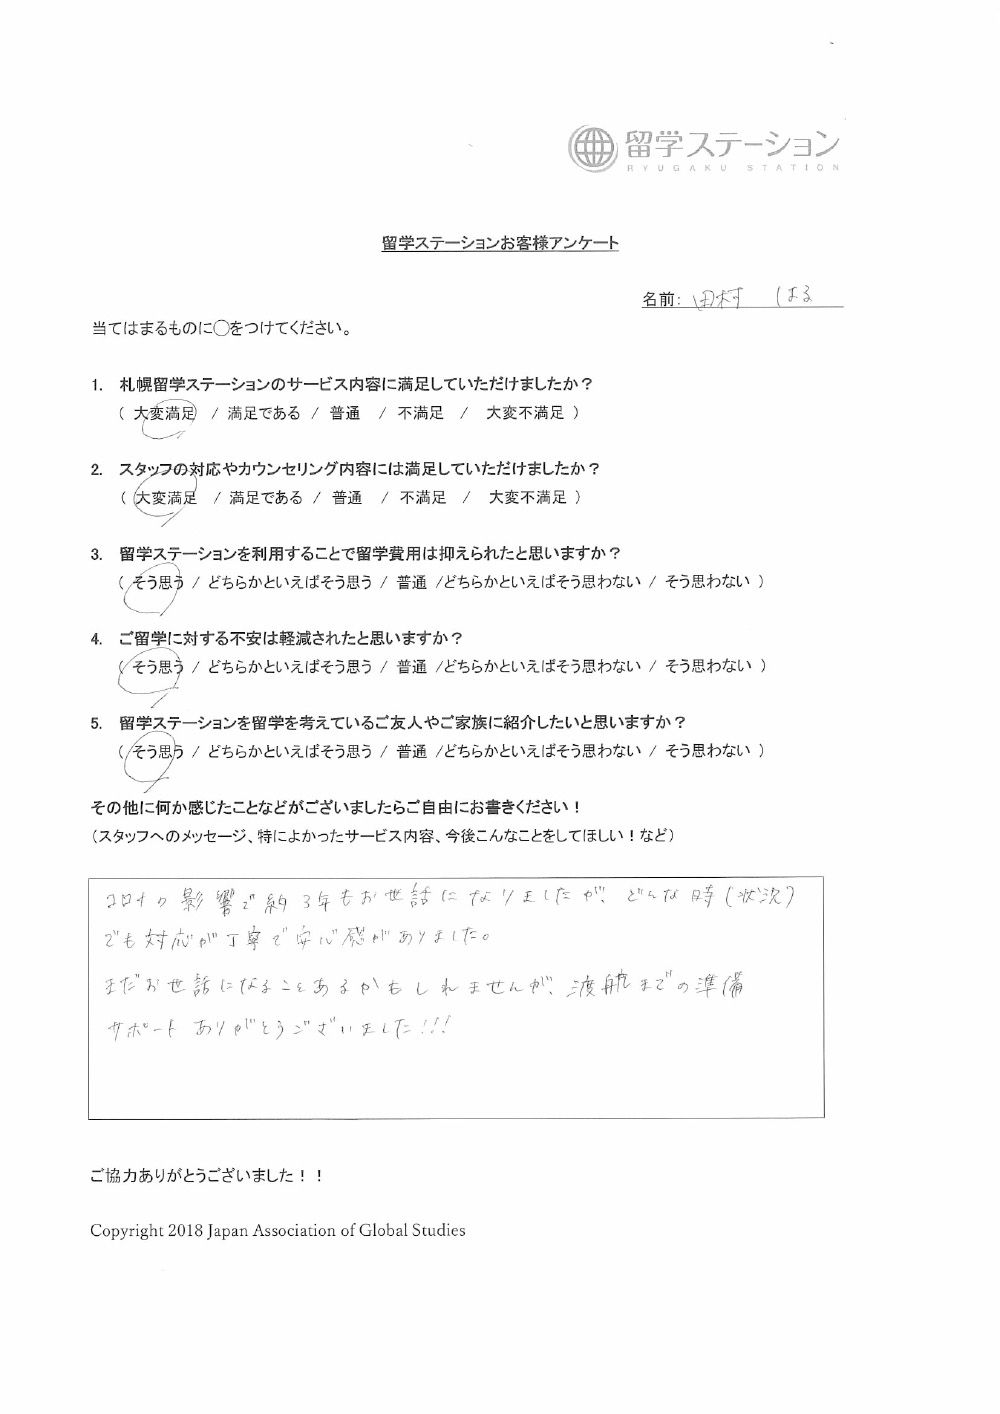 留学ステーション
RYUGAKU STATION
留学ステーションお客様アンケート
名前: 田村 はる
当てはまるものに○をつけてください。
1. 札幌留学ステーションのサービス内容に満足していただけましたか？
( 大変満足 / 満足である / 普通 / 不満足 / 大変不満足 )
2. スタッフの対応やカウンセリング内容には満足していただけましたか？
( 大変満足 / 満足である / 普通 / 不満足 / 大変不満足 )
3. 留学ステーションを利用することで留学費用は抑えられたと思いますか？
( そう思う / どちらかといえばそう思う / 普通 /どちらかといえばそう思わない / そう思わない )
4. ご留学に対する不安は軽減されたと思いますか？
( そう思う / どちらかといえばそう思う / 普通 /どちらかといえばそう思わない / そう思わない )
5. 留学ステーションを留学を考えているご友人やご家族に紹介したいと思いますか？
( そう思う / どちらかといえばそう思う / 普通 /どちらかといえばそう思わない / そう思わない )
その他に何か感じたことなどがございましたらご自由にお書きください！
（スタッフへのメッセージ、特によかったサービス内容、今後こんなことをしてほしい！など）
コロナの影響で約3年もお世話になりましたが、どんな時(状況)
でも対応が丁寧で安心感がありました。
まだお世話になることあるかもしれませんが、渡航までの準備
サポートありがとうございました!!!
ご協力ありがとうございました！！
Copyright 2018 Japan Association of Global Studies